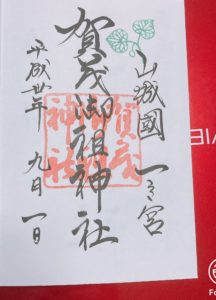 山城國一之宮
賀茂御祖神社
平成卅年九月一日
賀茂
神社